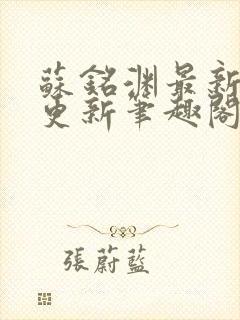 蘇銘淵最新
更新筆趣閣
張蔚藍